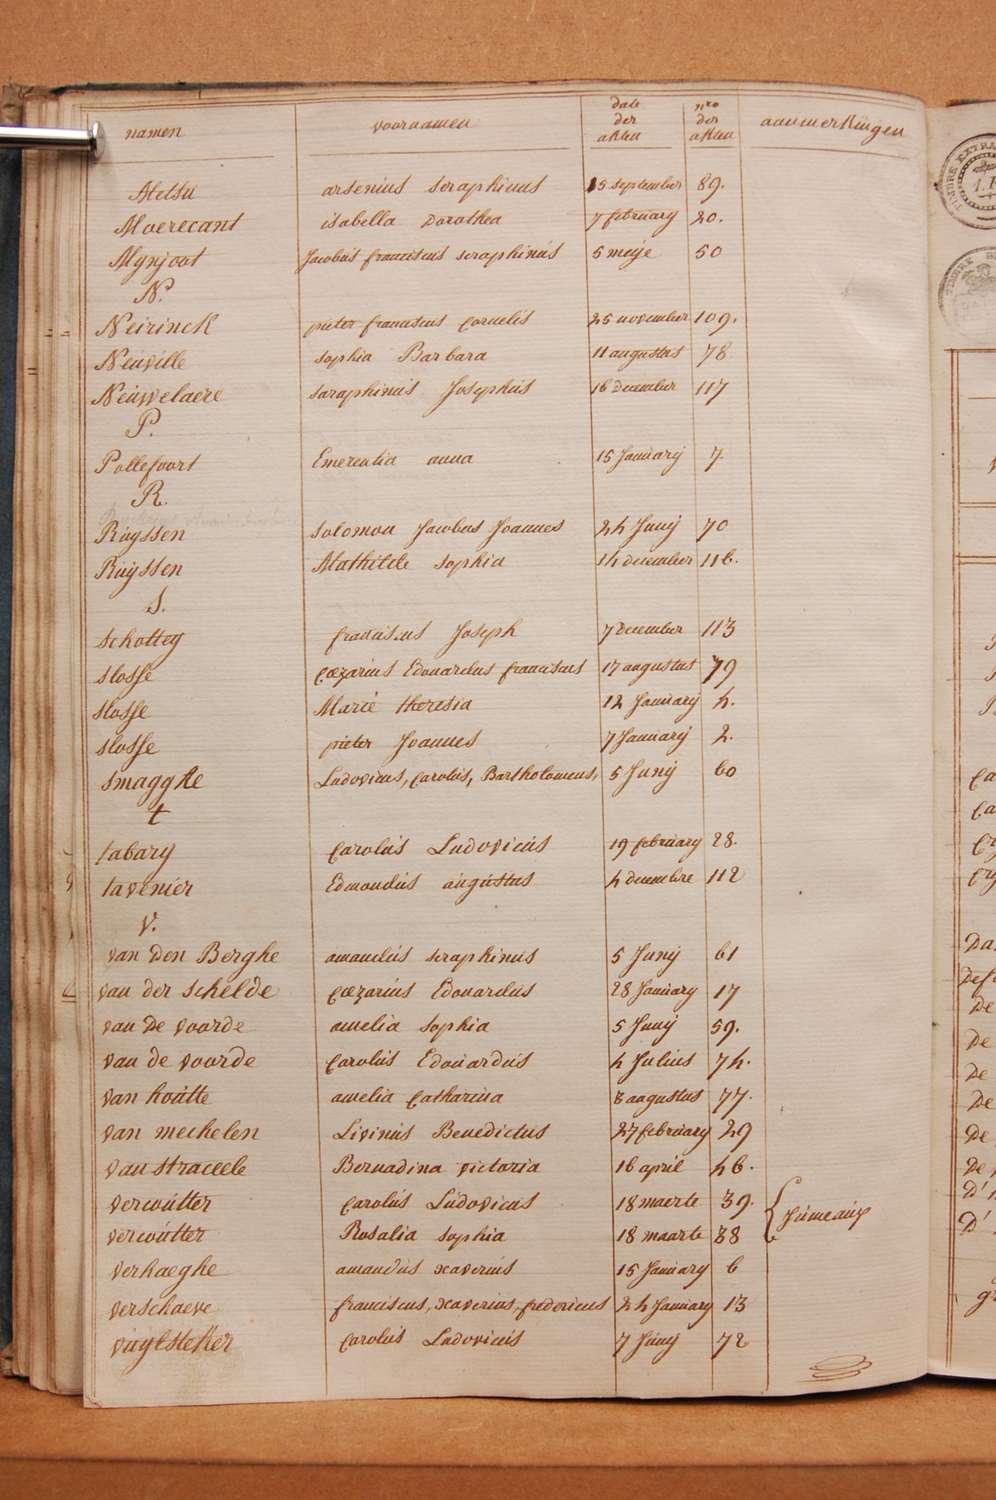 namen voornamen date der akten nro der akten aanmerkingen
Metsu arsenius seraphinus 15 september 89.
Moerecant isabella Dorothea 7 february 20.
Mynjoot Jacobus franciscus seraphinus 5 meije 50
N.
Neirinck pieter franciscus Cornelis 25 november 109.
Neuville sophia Barbara 11 augustus 78
Neuwelaere saraphinus Josephus 16 December 117
P.
Pollefoort Emerentia anna 15 January 7
R.
Ruyssen solomon Jacobus Joannes 24 Junij 70
Ruyssen Mathilde sophia 14 december 116.
S.
schottey franciscus Joseph 7 December 113
slosse Cæzarius Edouardus franciscus 17 augustus 79
slosse Marie theresia 12 January 4.
slosse pieter Joannes 7 January 2.
smagghe Ludovicus, Carolus, Bartholomeus, 5 Junij 60
t
tabary Carolus Ludovicus 19 february 28.
tavenier Edmondus augustus 4 decembre 112
V.
van Den Berghe amandus seraphinus 5 Junij 61
van der schelde Cæzarius Edouardus 28 January 17
van De voorde amelia sophia 5 Junij 59.
van de voorde Carolus Edouardus 4 Julius 74.
van houtte amelia Catharina 3 augustus 77.
van mechelen Livinus Benedictus 27 february 29
van straceele Bernadina victoria 16 april 46.
vercoutter Carolus Ludovicus 18 maerte 39.
Jumeaux
vercoutter Rosalia sophia 18 maarte 38
verhaeghe amandus xaverius 15 January 6
verschaeve franciscus, xaverius, fredericus 24 January 13
vuylsteker Carolus Ludovicus 7 Junij 72